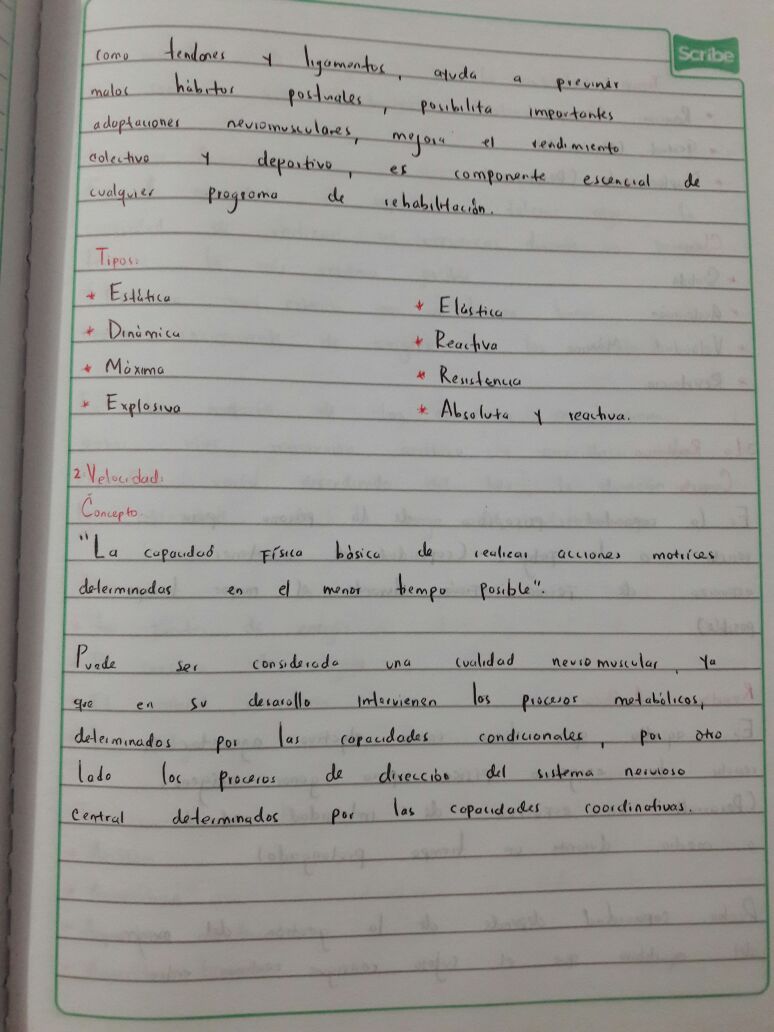 Scribe
como tendones y ligamentos, ayuda a previnir
malos hábitos posturales, posibilita importantes
adaptaciones neuromusculares, mejora el rendimiento
colectivo y deportivo, es componente escencial de
cualquier programa de rehabilitación.
Tipos:
* Estática * Elástica
* Dinámica * Reactiva
* Máxima * Resistencia
* Explosiva * Absoluta y reactiva.
2. Velocidad:
Concepto.
"La capacidad física básica de realizar acciones motrices
determinadas en el menor tiempo posible".
Puede ser considerada una cualidad neuromuscular, ya
que en su desarollo intervienen los procesos metabólicos,
determinados por las capacidades condicionales, por otro
lado los procesos de dirección del sistema nervioso
central determinados por las capacidades coordinativas.